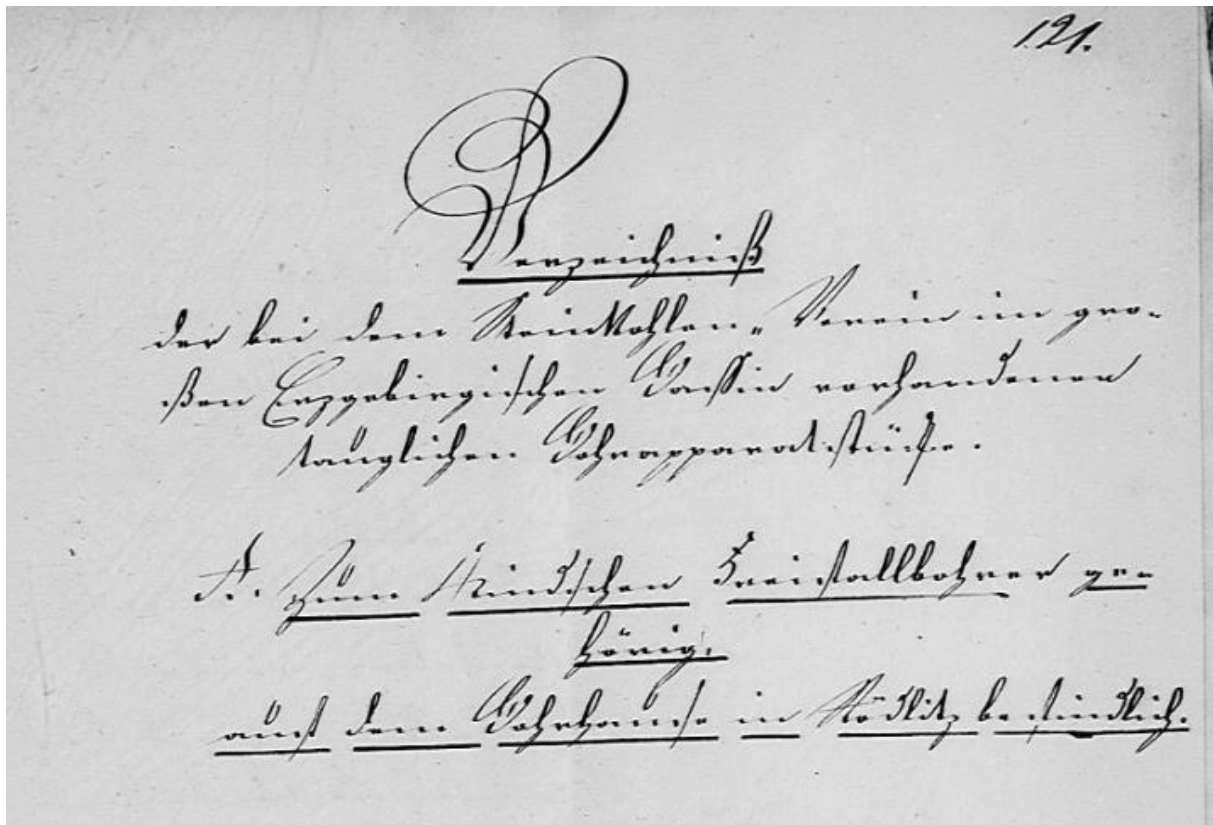 121.
Verzeichniß
der bei dem Steinkohlen-Verein im gro-
ßen Erzgebirgischen Bassin vorhandenen
tauglichen Bohrapparatstücke.
A. Zum Kindschen Freifallbohrer ge-
hörig.
auf dem Bohrhause in Rödlitz befindlich.